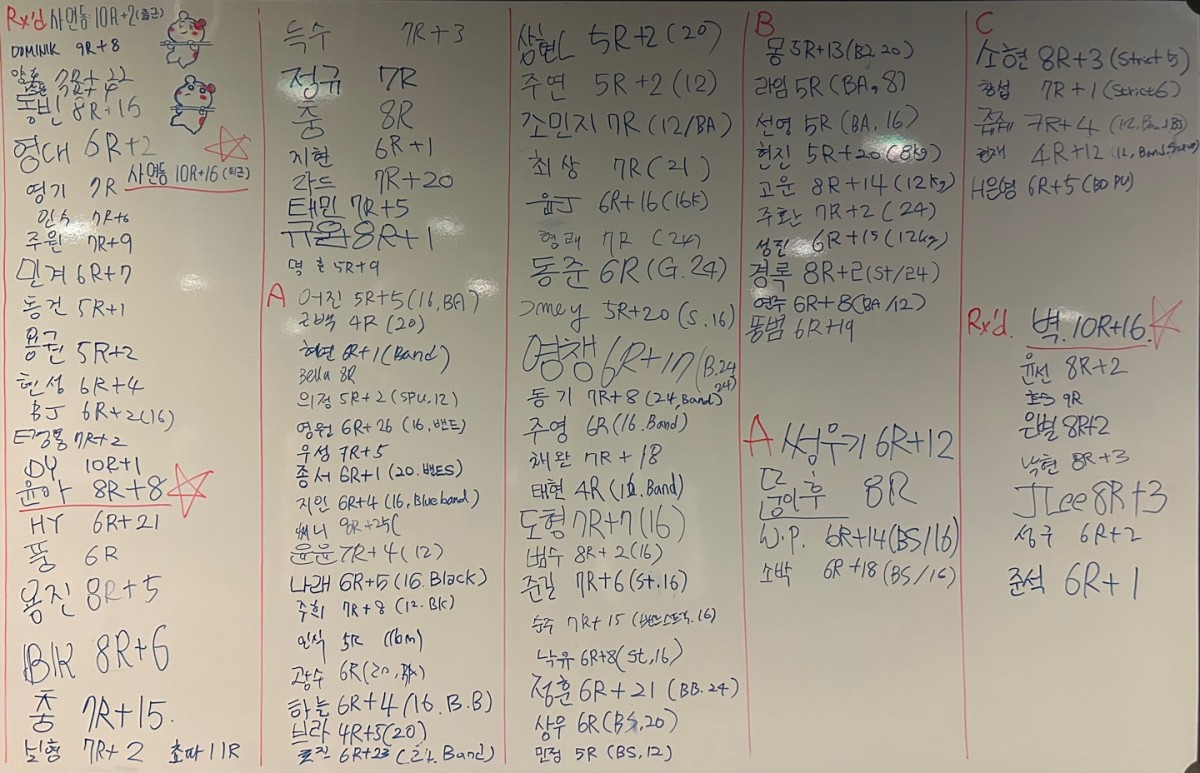 Rx'd 사연동 10R+2 (출근)
DOMINIK 9R+8
동빈 8R+15
영대 6R+2
영기 7R
사연동 10R+16 (퇴근)
민수 7R+6
주원 7R+9
민겨 6R+7
동건 5R+1
용권 5R+2
현성 6R+4
BJ 6R+2(16)
7R+2
DY 10R+1
윤아 8R+8
HY 6R+21
풍 6R
용진 8R+5
BK 8R+6
충 7R+15.
보형 7R+2 초따 11R
득수 7R+3
정규 7R
충 8R
지현 6R+1
라드 7R+20
태민 7R+5
규완 8R+1
5R+9
A 어진 5R+5(16.BA)
근백 4R (20)
현연 6R+1(Band)
Bella 8R
의정 5R+2(SPU.12)
영원 6R+26 (16.밴드)
우성 7R+5
종서 6R+1 (20.밴드S)
지인 6R+4 (16, Blue band)
써니
윤윤 7R+4(12)
나래 6R+5(16.Black)
주희 7R+8 (12.BK)
인식 5R
광수 6R(20,
하늘 6R+4(16.B.B)
브라 4R+5(20)
6R+23 (24. Band)
삼현 5R+2(20)
주연 5R+2(12)
조민지 7R(12/BA)
최상 7R(21)
윤J 6R+16(16K)
형래 7R (24)
동준 6R(G.24)
5R+20(S.16)
영쟁 6R+17(B.24
24)
동기 7R+8(24,Band)
주영 6R(16.Band)
채완 7R+18
태현 4R(16.Band)
도형 7R+7(16)
범수 8R+2(16)
준길 7R+6(St.16)
승주 7R+15
낙유 6R+8(St,16)
정훈 6R+21(BB.24)
상우 6R(BS,20)
민정 5R(BS,12)
B
몽 5R+13(B2.20)
라임 5R(BA,8)
선영 5R(BA.16)
현진 5R+20(8kg)
고운 8R+14(12kg)
주환 7R+2(24)
성진 6R+15(12kg)
경록 8R+2(St/24)
연주 6R+8(BA/12)
풍범 6R+19
A 썽우기 6R+12
8R
W.P. 6R+14(BS/16)
소박 6R+18(BS/16)
C
소현 8R+3(Strict5)
7R+1(Strict6)
7R+4
4R+12
H은영 6R+5(BD PU)
Rx'd. 벽. 10R+16.
윤선 8R+2
9R
은별 8R+2
낙현 8R+3
JLee 8R+3
성구 6R+2
준석 6R+1